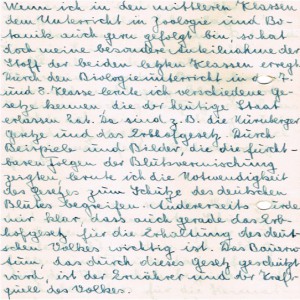 Wenn ich in den mittleren Klassen
dem Unterricht in Zoologie und Bo-
tanik auch gern gefolgt bin, so hat
doch meine besondere Anteilnahme der
Stoff der beiden letzten Klassen erregt.
Durch den Biologieunterricht der 7.
und 8. Klasse lernte ich verschiedene Ge-
setze kennen, die der heutige Staat
erlassen hat. Da sind z.B. die Nürnberger
Gesetze und das Erbhofgesetz. Durch
Beispiele und Bilder, die die furcht-
baren Folgen der Blutsvermischung
zeigten, lernte ich die Notwendigkeit
des Gesetzes zum Schutze des deutschen
Blutes begreifen. Andererseits wurde
mir klar, dass auch gerade das Erb-
hofgesetz für die Erhaltung des deut-
schen Volkes wichtig ist. Das Bauern-
tum, das durch dieses Gesetz geschützt
wird, ist der Ernährer und der Kraft-
quell des Volkes.